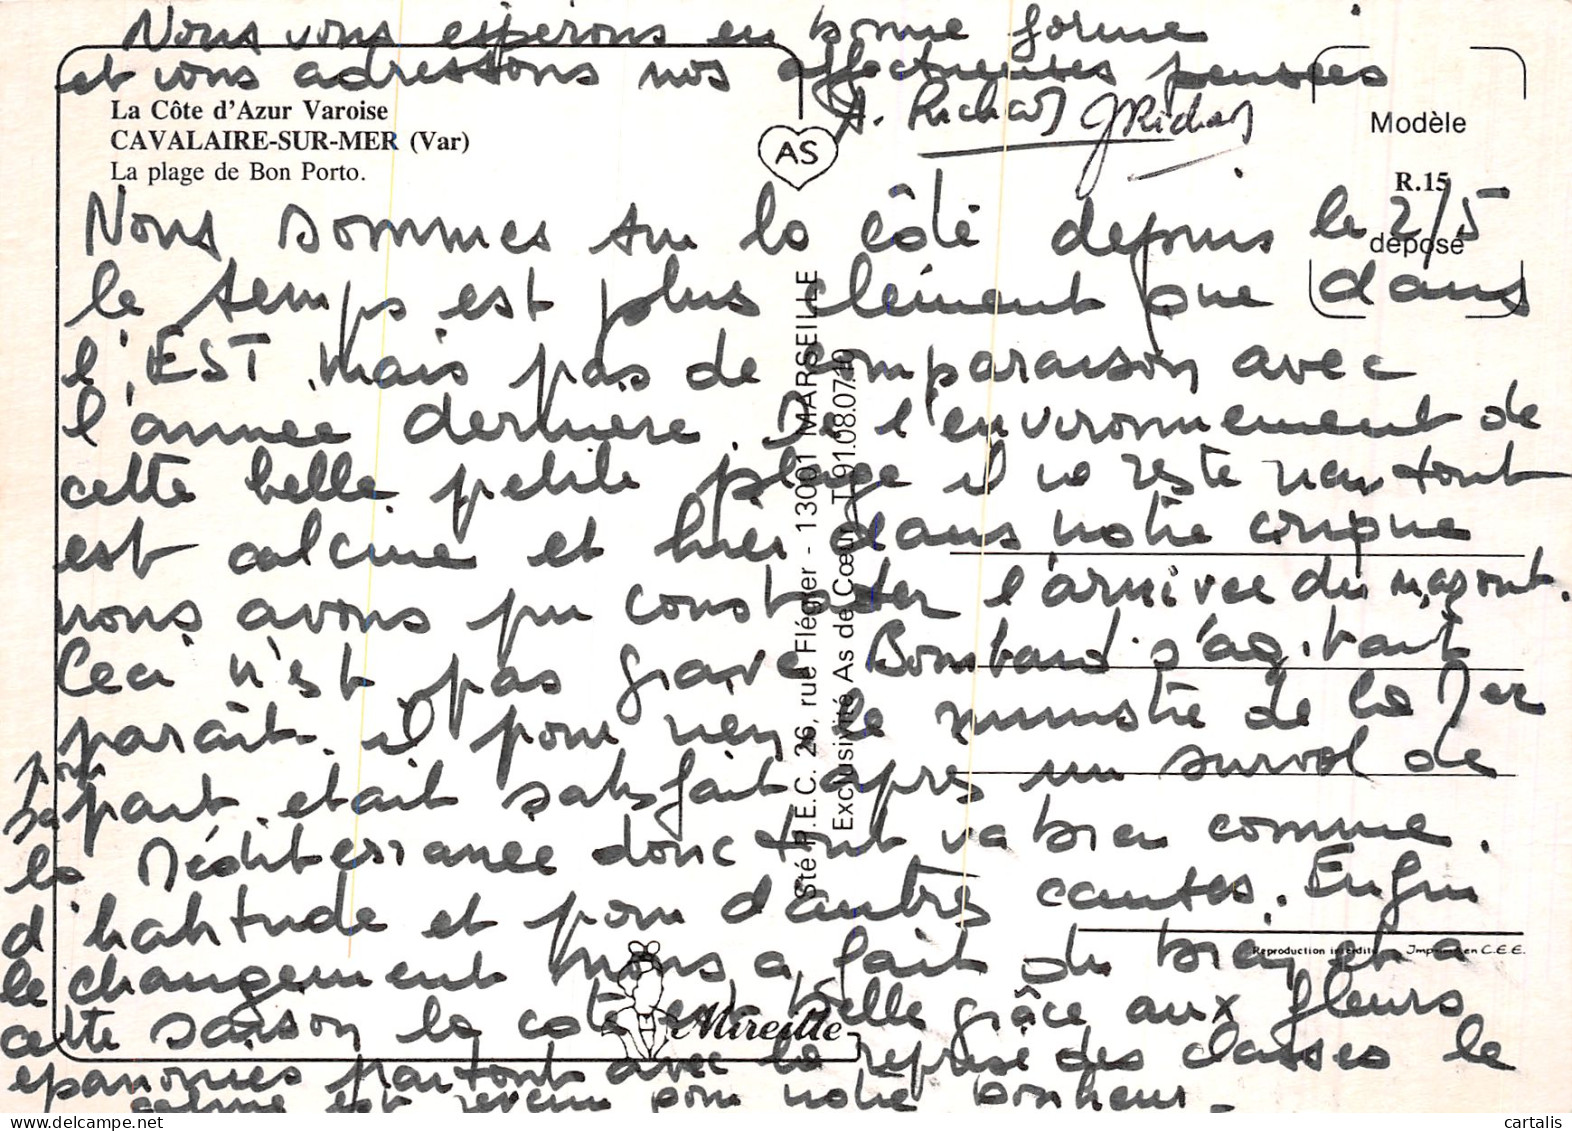 Nous vous espérons en bonne forme
et vous adressons nos affectueuses pensées
A. Richard GRichard
La Côte d'Azur Varoise
CAVALAIRE-SUR-MER (Var)
La plage de Bon Porto.
AS
Modèle
R.15
déposé
Nous sommes sur la côte depuis le 2/5
le temps est plus clément que dans
l'EST mais pas de comparaison avec
l'année dernière. De l'environnement de
cette belle petite plage il ne reste rien tout
est calciné et hier dans notre crique
nous avons pu constater l'arrivée du mazout.
Ceci n'est pas grave Bombard s'agitant
paraît-il pour rien le ministre de la Mer
pour sa part était satisfait après un survol de
la Méditerranée donc tout va bien comme
d'habitude et pour d'autres causes. Enfin
le changement nous a fait du bien et à
cette saison la côte est belle grâce aux fleurs
épanouies partout avec la reprise des classes le
calme est revenu pour notre bonheur.
Sté P.E.C. 26, rue Flégier - 13001 MARSEILLE
Exclusivité As de Cœur T. 91.08.07.10
Reproduction interdite - Imprimé en C.E.E.
Mireille
cartalis